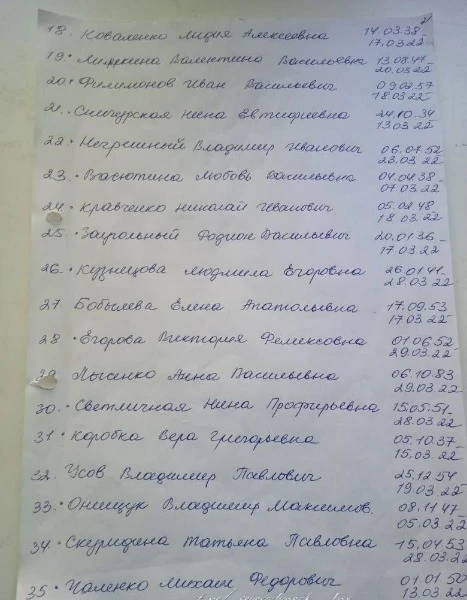 2/
18. Коваленко Лидия Алексеевна 14.03.38-
17.03.22
19. Валентина Васильевна 13.08.41-
20.03.22
20. Филимонов Иван Васильевич 09.02.57
18.03.22
21. Снегурская Нина Евтифеевна 24.10.34-
13.03.22
22. Негрешный Владимир Иванович 06.07.52
23.03.22
23. Васютина Любовь Васильевна 04.04.38-
07.03.22
24. Кравченко Николай Иванович 05.02.48
18.03.22
25. Родион Васильевич 20.01.36-
17.03.22
26. Кузнецова Людмила Егоровна 26.01.41-
28.03.22
27 Бобылева Елена Анатольевна 17.09.53
17.03.22
28 Егорова Виктория Фелексовна 01.06.52
29.03.22
29. Лысенко Анна Васильевна 06.10.83
29.03.22
30. Светличная Нина Профирьевна 15.05.51-
28.03.22
31. Коробка Вера Григорьевна 05.10.37-
15.03.22
32. Усов Владимир Павлович 25.12.54
19.03.22
33. Онищук Владимир Максимов. 08.11.47
05.03.22
34. Татьяна Павловна 15.04.53
28.03.22
35 Михаил Федорович 01.01.50
13.03.22